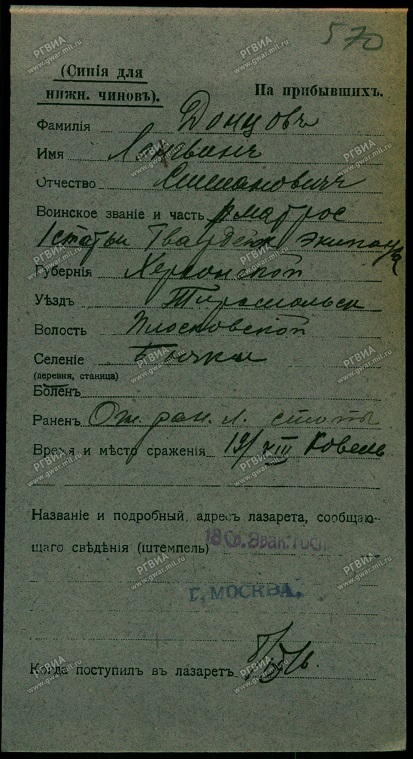 570
(Синія для
нижн. чиновъ).
На прибывшихъ.
Фамилія Донцовъ
Имя
Отчество
Воинское званіе и часть матрос
1 статьи Гвардейск экипажа
Губернія Херсонской
Уѣздъ Тираспольск
Волость Плосковской
Селеніе Бычки
(деревня, станица)
Боленъ
Раненъ Ог. ран. л. стопы
Время и мѣсто сраженія Ковель
Названіе и подробный адресъ лазарета, сообщаю-
щаго свѣдѣнія (штемпель) 18 Св. Эвак. Госп.
Г. МОСКВА.
Когда поступилъ въ лазаретъ
РГВИА
www.gwar.mil.ru